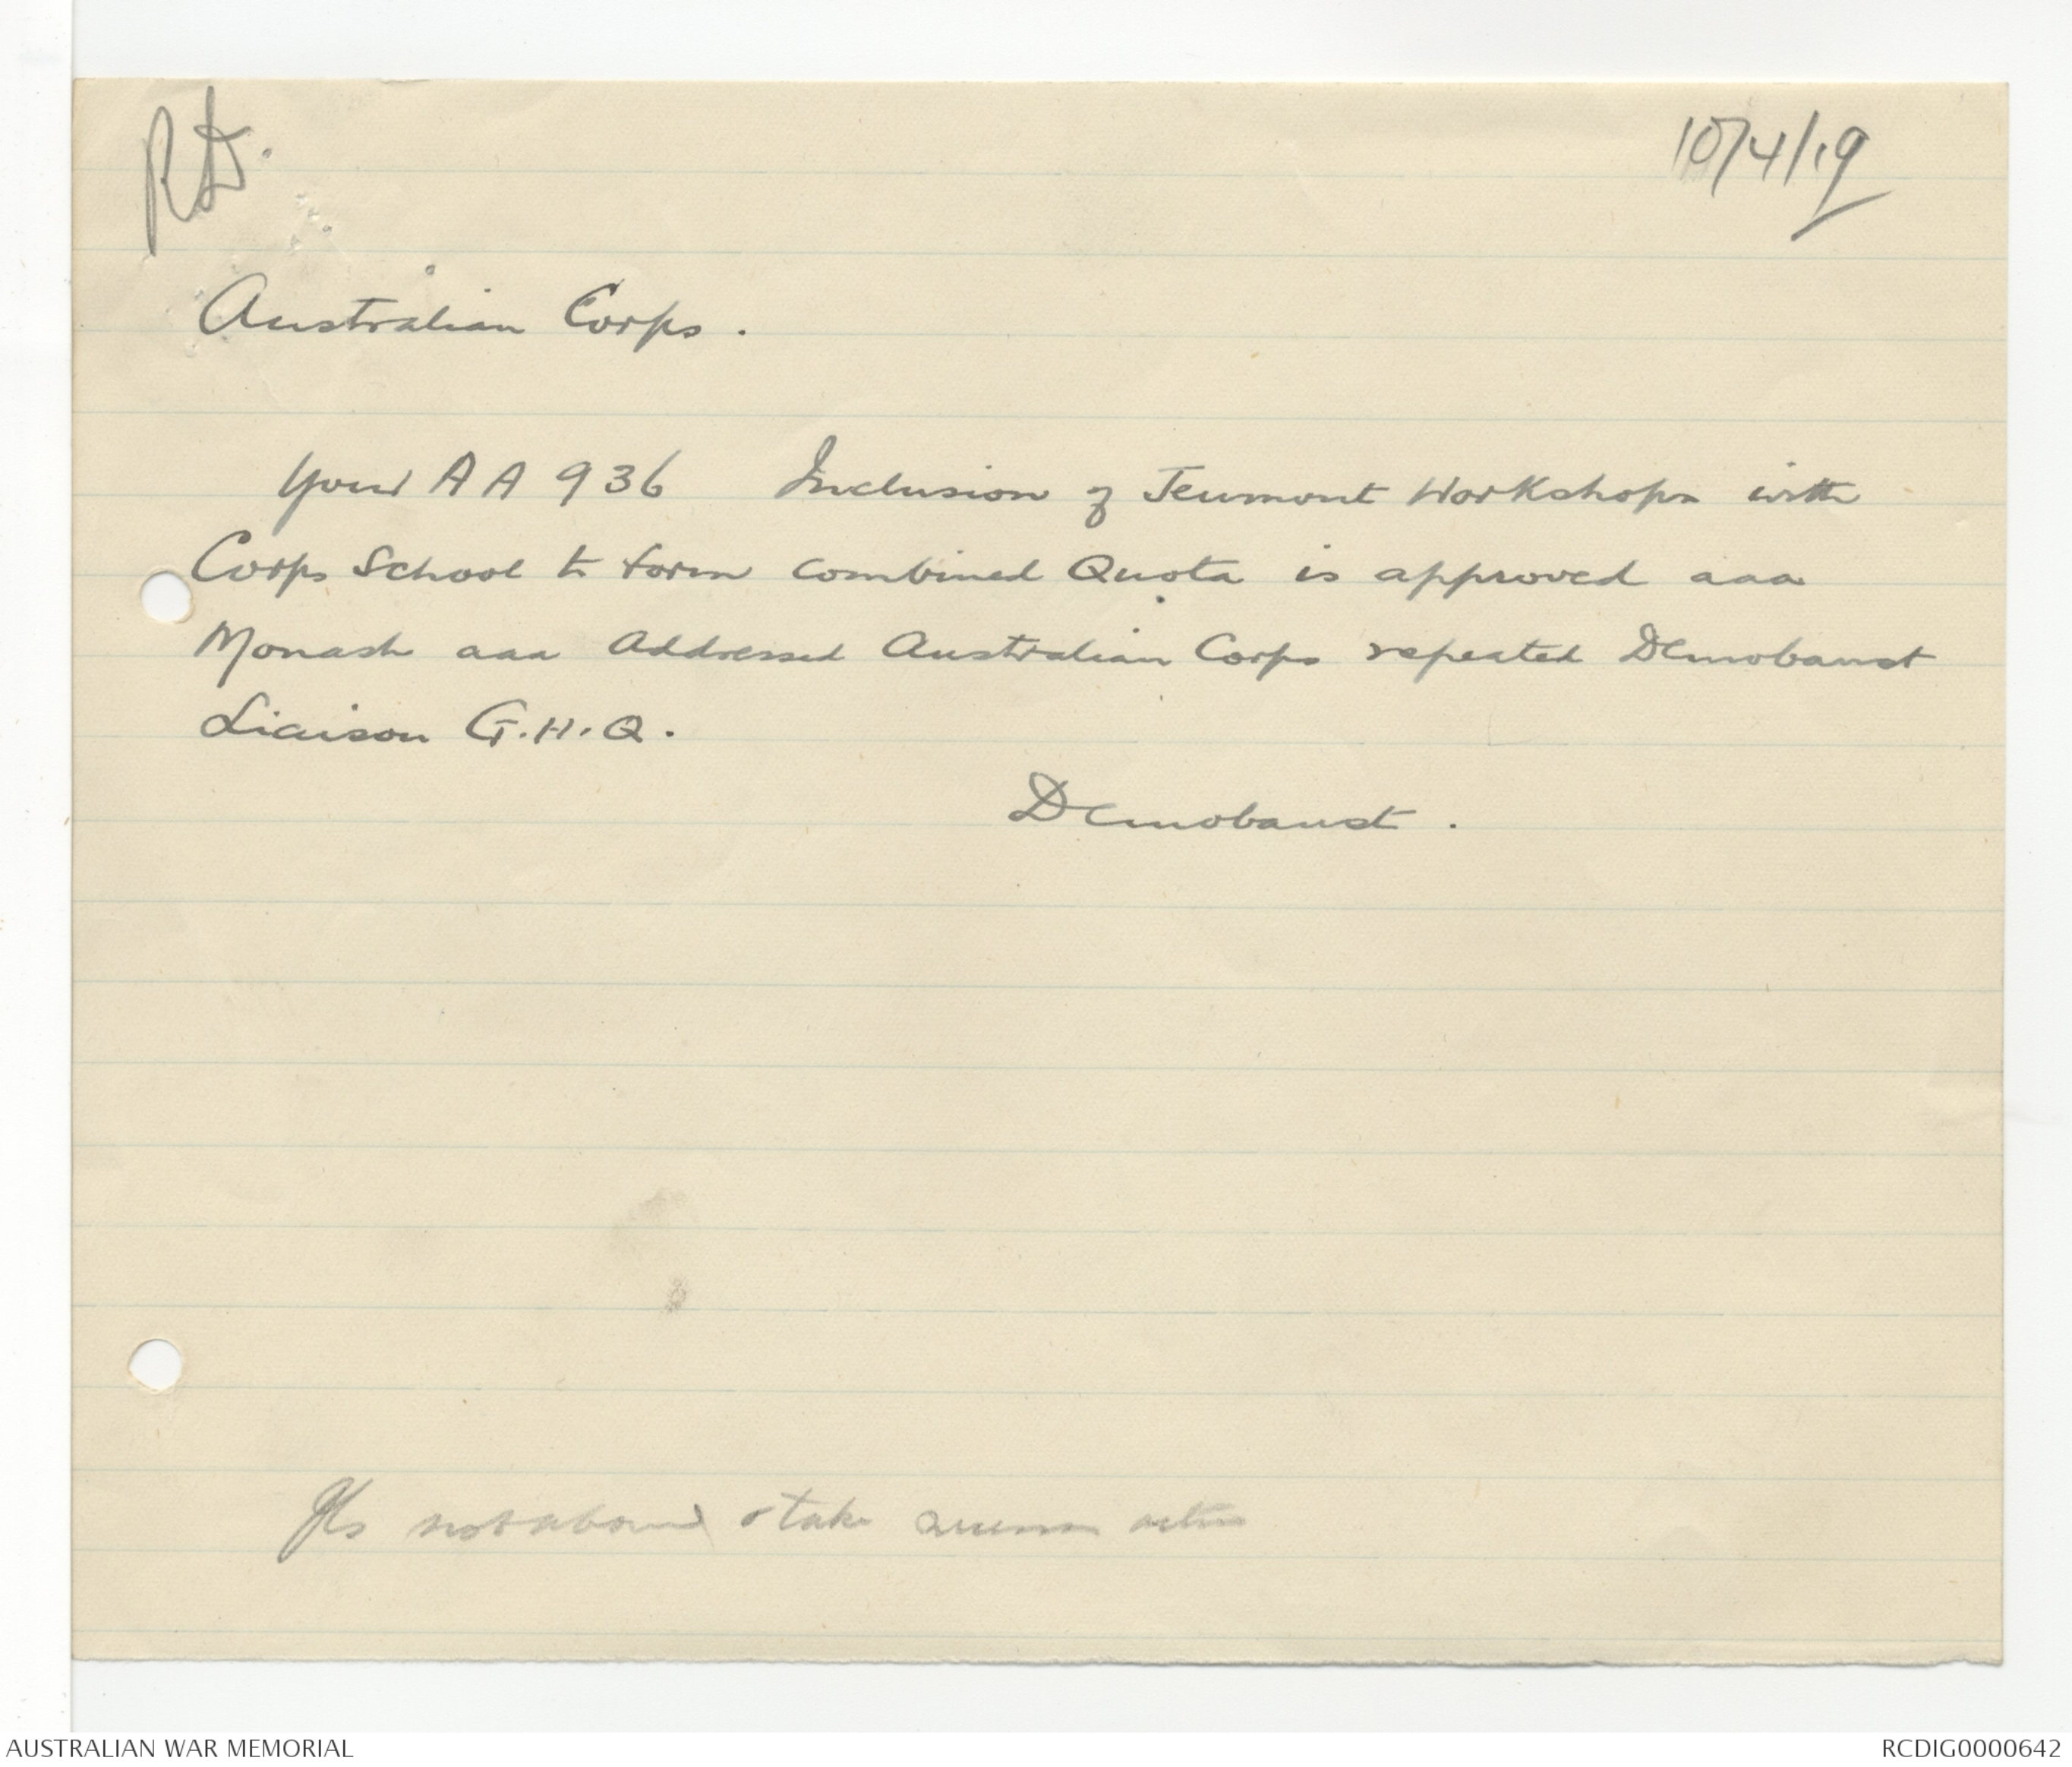 RD.
10/4/19
Australian Corps.
Your AA 936 Inclusion of Jeumont Workshops with
Corps School to form combined Quota is approved aaa
Monash aaa Addressed Australian Corps repeated Demobaust
Liaison G.H.Q.
Demobaust.
take
AUSTRALIAN WAR MEMORIAL
RCDIG0000642